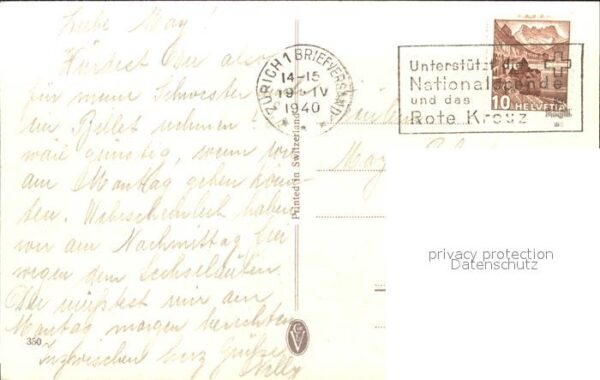 Liebe May!
Würdest Du also
für meine Schwester
ein Billet nehmen?
wäre günstig, wenn wir
am Montag gehen könn-
ten. Wahrscheinlich haben
wir am Nachmittag frei
wegen dem Sechseläuten.
Du müsstest mir am
Montag morgen berichten
Inzwischen herz Grüsse
Willy
350
Printed in Switzerland
ZÜRICH 1 BRIEFVERSAND
14-15
19 IV
1940
Unterstützt die
Nationalspende
und das
Rote Kreuz
10 HELVETIA
Fräulein
May
privacy protection
Datenschutz